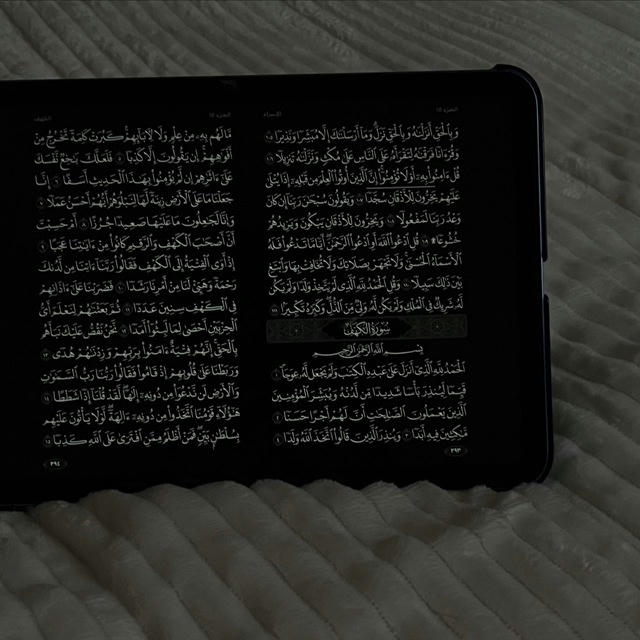 الإسراء الجزء ١٥
وَبِٱلْحَقِّ أَنزَلْنَٰهُ وَبِٱلْحَقِّ نَزَلَ وَمَآ أَرْسَلْنَٰكَ إِلَّا مُبَشِّرًا وَنَذِيرًا ١٠٥
وَقُرْءَانًا فَرَقْنَٰهُ لِتَقْرَأَهُۥ عَلَى ٱلنَّاسِ عَلَىٰ مُكْثٍ وَنَزَّلْنَٰهُ تَنزِيلًا ١٠٦
قُلْ ءَامِنُوا۟ بِهِۦٓ أَوْ لَا تُؤْمِنُوٓا۟ إِنَّ ٱلَّذِينَ أُوتُوا۟ ٱلْعِلْمَ مِن قَبْلِهِۦٓ إِذَا يُتْلَىٰ
عَلَيْهِمْ يَخِرُّونَ لِلْأَذْقَانِ سُجَّدًا ١٠٧ وَيَقُولُونَ سُبْحَٰنَ رَبِّنَآ إِن كَانَ
وَعْدُ رَبِّنَا لَمَفْعُولًا ١٠٨ وَيَخِرُّونَ لِلْأَذْقَانِ يَبْكُونَ وَيَزِيدُهُمْ
خُشُوعًا ۩ ١٠٩ قُلِ ٱدْعُوا۟ ٱللَّهَ أَوِ ٱدْعُوا۟ ٱلرَّحْمَٰنَ أَيًّا مَّا تَدْعُوا۟ فَلَهُ
ٱلْأَسْمَآءُ ٱلْحُسْنَىٰ وَلَا تَجْهَرْ بِصَلَاتِكَ وَلَا تُخَافِتْ بِهَا وَٱبْتَغِ
بَيْنَ ذَٰلِكَ سَبِيلًا ١١٠ وَقُلِ ٱلْحَمْدُ لِلَّهِ ٱلَّذِى لَمْ يَتَّخِذْ وَلَدًا وَلَمْ يَكُن
لَّهُۥ شَرِيكٌ فِى ٱلْمُلْكِ وَلَمْ يَكُن لَّهُۥ وَلِىٌّ مِّنَ ٱلذُّلِّ وَكَبِّرْهُ تَكْبِيرًۢا ١١١
سُورَةُ الكَهْفِ
بِسْمِ ٱللَّهِ ٱلرَّحْمَٰنِ ٱلرَّحِيمِ
ٱلْحَمْدُ لِلَّهِ ٱلَّذِىٓ أَنزَلَ عَلَىٰ عَبْدِهِ ٱلْكِتَٰبَ وَلَمْ يَجْعَل لَّهُۥ عِوَجَا ١
قَيِّمًا لِّيُنذِرَ بَأْسًا شَدِيدًا مِّن لَّدُنْهُ وَيُبَشِّرَ ٱلْمُؤْمِنِينَ
ٱلَّذِينَ يَعْمَلُونَ ٱلصَّٰلِحَٰتِ أَنَّ لَهُمْ أَجْرًا حَسَنًا ٢
مَّٰكِثِينَ فِيهِ أَبَدًا ٣ وَيُنذِرَ ٱلَّذِينَ قَالُوا۟ ٱتَّخَذَ ٱللَّهُ وَلَدًا ٤
٢٩٣
الجزء ١٥ الكهف
مَّا لَهُم بِهِۦ مِنْ عِلْمٍ وَلَا لِءَابَآئِهِمْ كَبُرَتْ كَلِمَةً تَخْرُجُ مِنْ
أَفْوَٰهِهِمْ إِن يَقُولُونَ إِلَّا كَذِبًا ٥ فَلَعَلَّكَ بَٰخِعٌ نَّفْسَكَ
عَلَىٰٓ ءَاثَٰرِهِمْ إِن لَّمْ يُؤْمِنُوا۟ بِهَٰذَا ٱلْحَدِيثِ أَسَفًا ٦ إِنَّا
جَعَلْنَا مَا عَلَى ٱلْأَرْضِ زِينَةً لَّهَا لِنَبْلُوَهُمْ أَيُّهُمْ أَحْسَنُ عَمَلًا ٧
وَإِنَّا لَجَٰعِلُونَ مَا عَلَيْهَا صَعِيدًا جُرُزًا ٨ أَمْ حَسِبْتَ
أَنَّ أَصْحَٰبَ ٱلْكَهْفِ وَٱلرَّقِيمِ كَانُوا۟ مِنْ ءَايَٰتِنَا عَجَبًا ٩
إِذْ أَوَى ٱلْفِتْيَةُ إِلَى ٱلْكَهْفِ فَقَالُوا۟ رَبَّنَآ ءَاتِنَا مِن لَّدُنكَ
رَحْمَةً وَهَيِّئْ لَنَا مِنْ أَمْرِنَا رَشَدًا ١٠ فَضَرَبْنَا عَلَىٰٓ ءَاذَانِهِمْ
فِى ٱلْكَهْفِ سِنِينَ عَدَدًا ١١ ثُمَّ بَعَثْنَٰهُمْ لِنَعْلَمَ أَىُّ
ٱلْحِزْبَيْنِ أَحْصَىٰ لِمَا لَبِثُوٓا۟ أَمَدًا ١٢ نَّحْنُ نَقُصُّ عَلَيْكَ نَبَأَهُم
بِٱلْحَقِّ إِنَّهُمْ فِتْيَةٌ ءَامَنُوا۟ بِرَبِّهِمْ وَزِدْنَٰهُمْ هُدًى ١٣
وَرَبَطْنَا عَلَىٰ قُلُوبِهِمْ إِذْ قَامُوا۟ فَقَالُوا۟ رَبُّنَا رَبُّ ٱلسَّمَٰوَٰتِ
وَٱلْأَرْضِ لَن نَّدْعُوَا۟ مِن دُونِهِۦٓ إِلَٰهًا لَّقَدْ قُلْنَآ إِذًا شَطَطًا ١٤
هَٰٓؤُلَآءِ قَوْمُنَا ٱتَّخَذُوا۟ مِن دُونِهِۦٓ ءَالِهَةً لَّوْلَا يَأْتُونَ عَلَيْهِم
بِسُلْطَٰنٍۭ بَيِّنٍ فَمَنْ أَظْلَمُ مِمَّنِ ٱفْتَرَىٰ عَلَى ٱللَّهِ كَذِبًا ١٥
٢٩٤